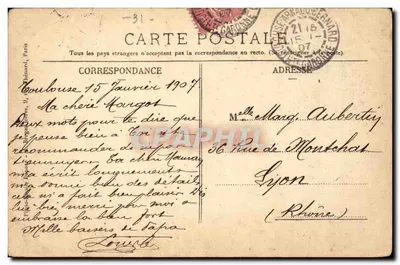 -31-
CARTE POSTALE
Tous les pays étrangers n'acceptent pas la correspondance au recto.
CORRESPONDANCE
ADRESSE
Toulouse 15 Janvier 1907
Ma chère Margot
Deux mots pour te dire que
je pense bien à Toi et te
recommander de pas
t'ennuyer. Ta chère Maman
m'a écrit longuement
m'a donné bien des détails
cela m'a fait bien plaisir
bien merci pour moi
embrasse la bien fort
Mille baisers de Papa
Louis
Melle Marg. Aubertin
36 Rue de Montchat
Lyon
(Rhône)
TOULOUSE
21 15
15 -1
07
HTE GARONNE
Paris
DELCAMPE